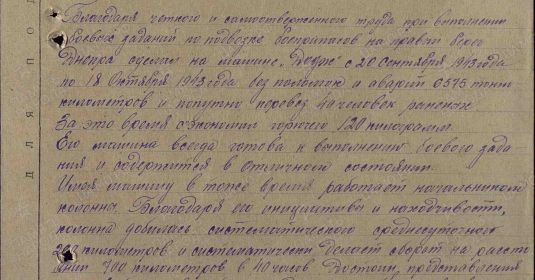 для под
Благодаря четкого и самоотверженного труда при выполнении
боевых заданий по подвозке боеприпасов на правый берег
Днепра сделал на машине "Додже" с 20 Сентября 1943 года
по 18 Октября 1943 года без поломок и аварий 0375 тонно
километров и попутно перевез 40 человек раненых
За это время сэкономил горючего 120 килограмм.
Его машина всегда готова к выполнению боевого зада-
ния и содержится в отличном состоянии.
Имея машину в тоже время работает начальником
колонны. Благодаря его инициативы и находчивости,
колонна добилась систематического среднесуточного
километров и систематически делает оборот на рассто
янии 400 километров в 40 часов Достоин, представления